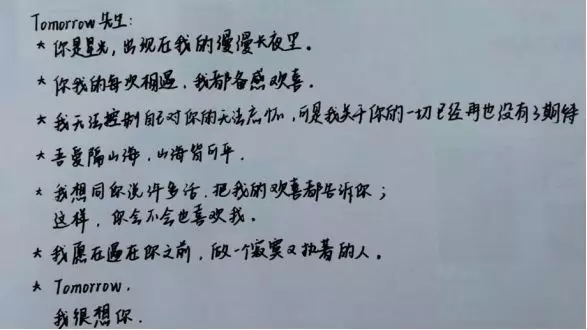 Tomorrow先生:
* 你是星光,出现在我的漫漫长夜里。
* 你我的每次相遇,我都备感欢喜。
* 我无法控制自己对你的无法忘怀,可是我关于你的一切已经再也没有了期待
* 吾爱隔山海,山海皆可平.
* 我想同你说许多话,把我的欢喜都告诉你;
这样,你会不会也喜欢我。
* 我愿在遇在你之前,做一个寂寞又执着的人。
* Tomorrow,
我很想你.